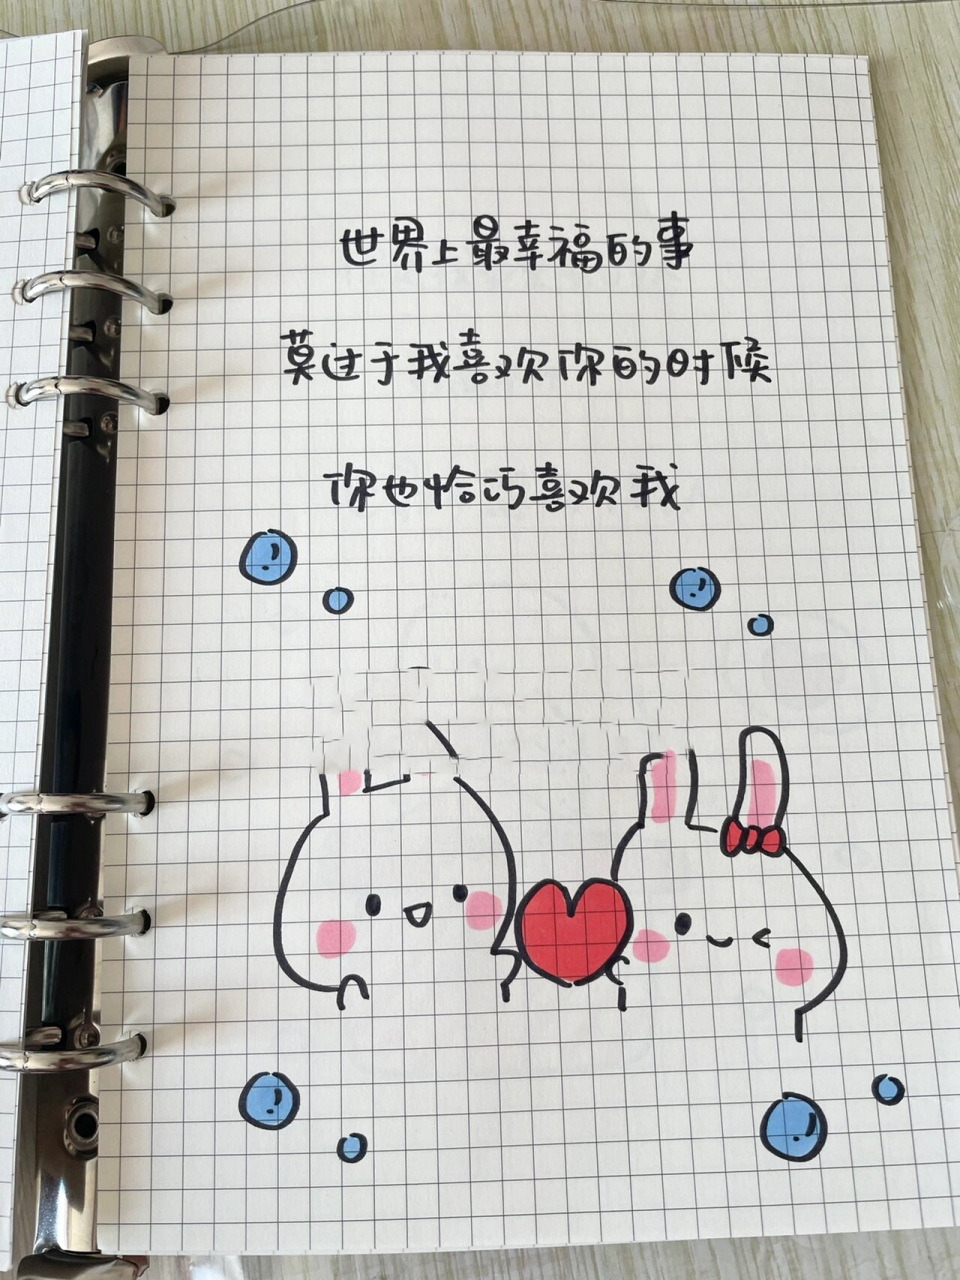 世界上最幸福的事
莫过于我喜欢你的时候
你也恰巧喜欢我